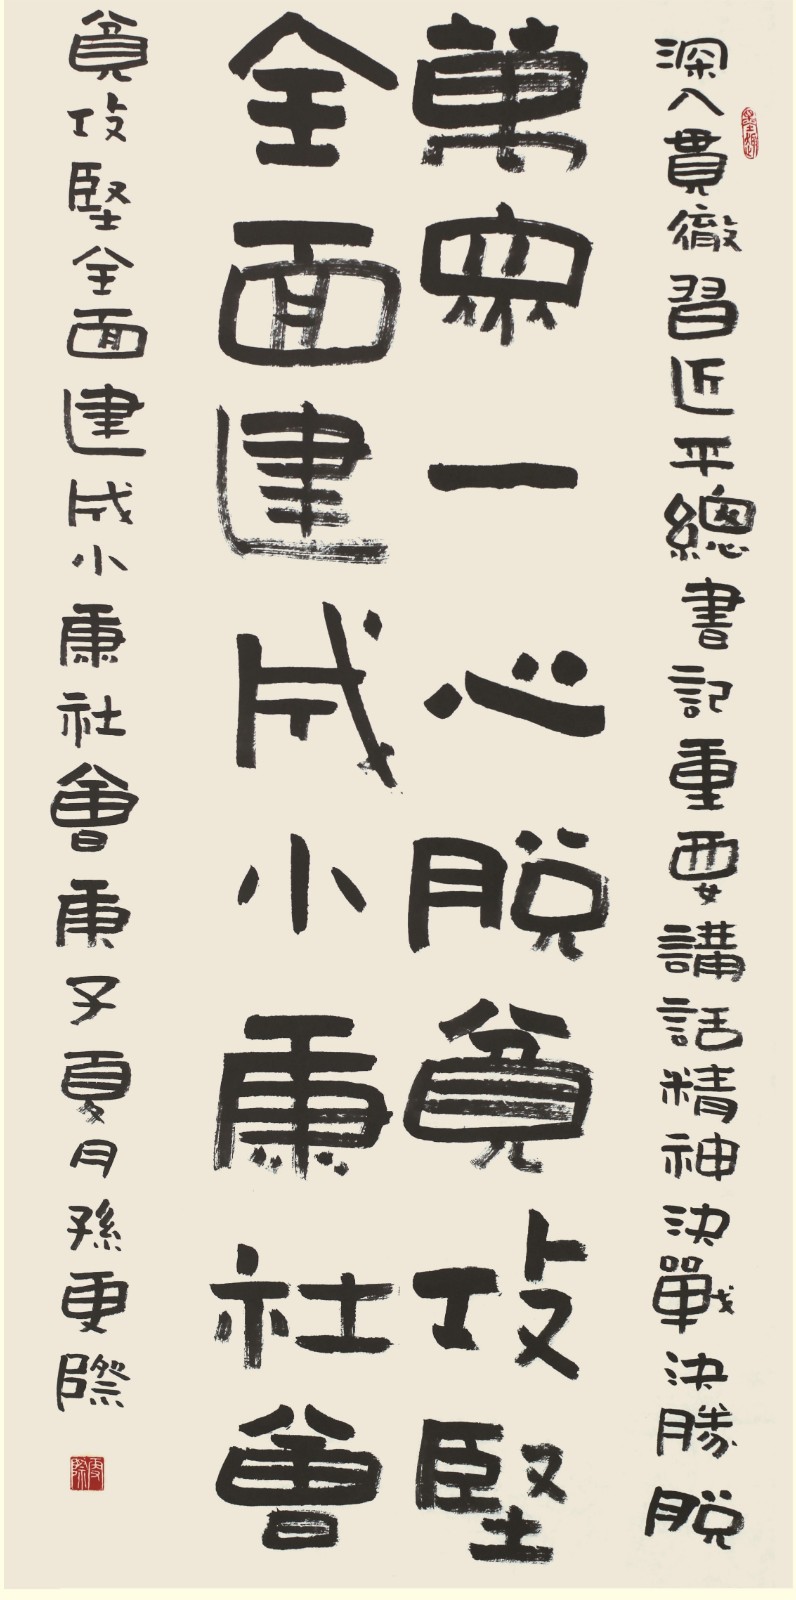 深入貫徹習近平總書記重要講話精神決戰決勝脱
萬衆一心脱貧攻堅
全面建成小康社會
貧攻堅全面建成小康社會庚子夏月孫更際